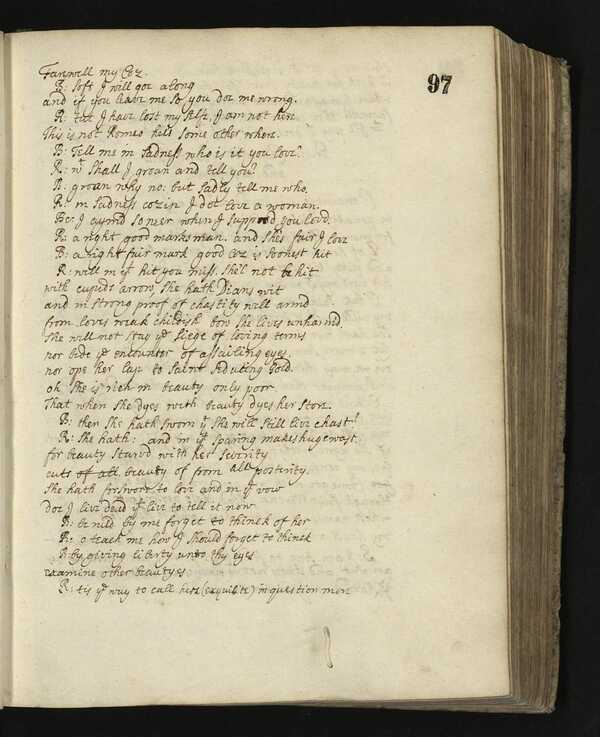 97
Farwell my Coz.
B: soft I will goe along
and if you leave me so you doe me wrong.
R: tut I have lost my selfe, I am not here
This is not Romeo hees some other where.
B: Tell me in sadness who is it you love?
R: wt shall I groan and tell you?
B: groan why no: but sadly tell me who.
R: in sadness cozin I doe love a woman.
Be: I aymd so neer when I supposd you lovd.
R: a right good marksman, and shes fair I love
B: a right fair mark good Coz is soonest hit
R: will in yt hit you miss. She'l not be hit
with cupids arrow, she hath Dians wit
and in strong proof of chastity well armd
from loves weak childish bow she lives unharmd.
She will not stay ye siege of loving terms
nor bide ye encounter of assailing eyes.
nor ope her lap to saint seducing Gold.
oh she is rich in beauty only poor
That when she dyes with beauty dyes her store.
B: then she hath sworn yt she will still live chast?
R: she hath: and in yt sparing makes huge wast.
for beauty starvd with her severity
cuts of all beauty of from all posterity.
She hath forsworn to love and in yt vow
Doe I live dead yt live to tell it now
B: be ruld by me forget to thinck of her
R: o teach me how I should forget to thinck
B: by giving liberty unto thy eyes
examine other beautyes
R: tis ye way to call hers (exquisite) in question more